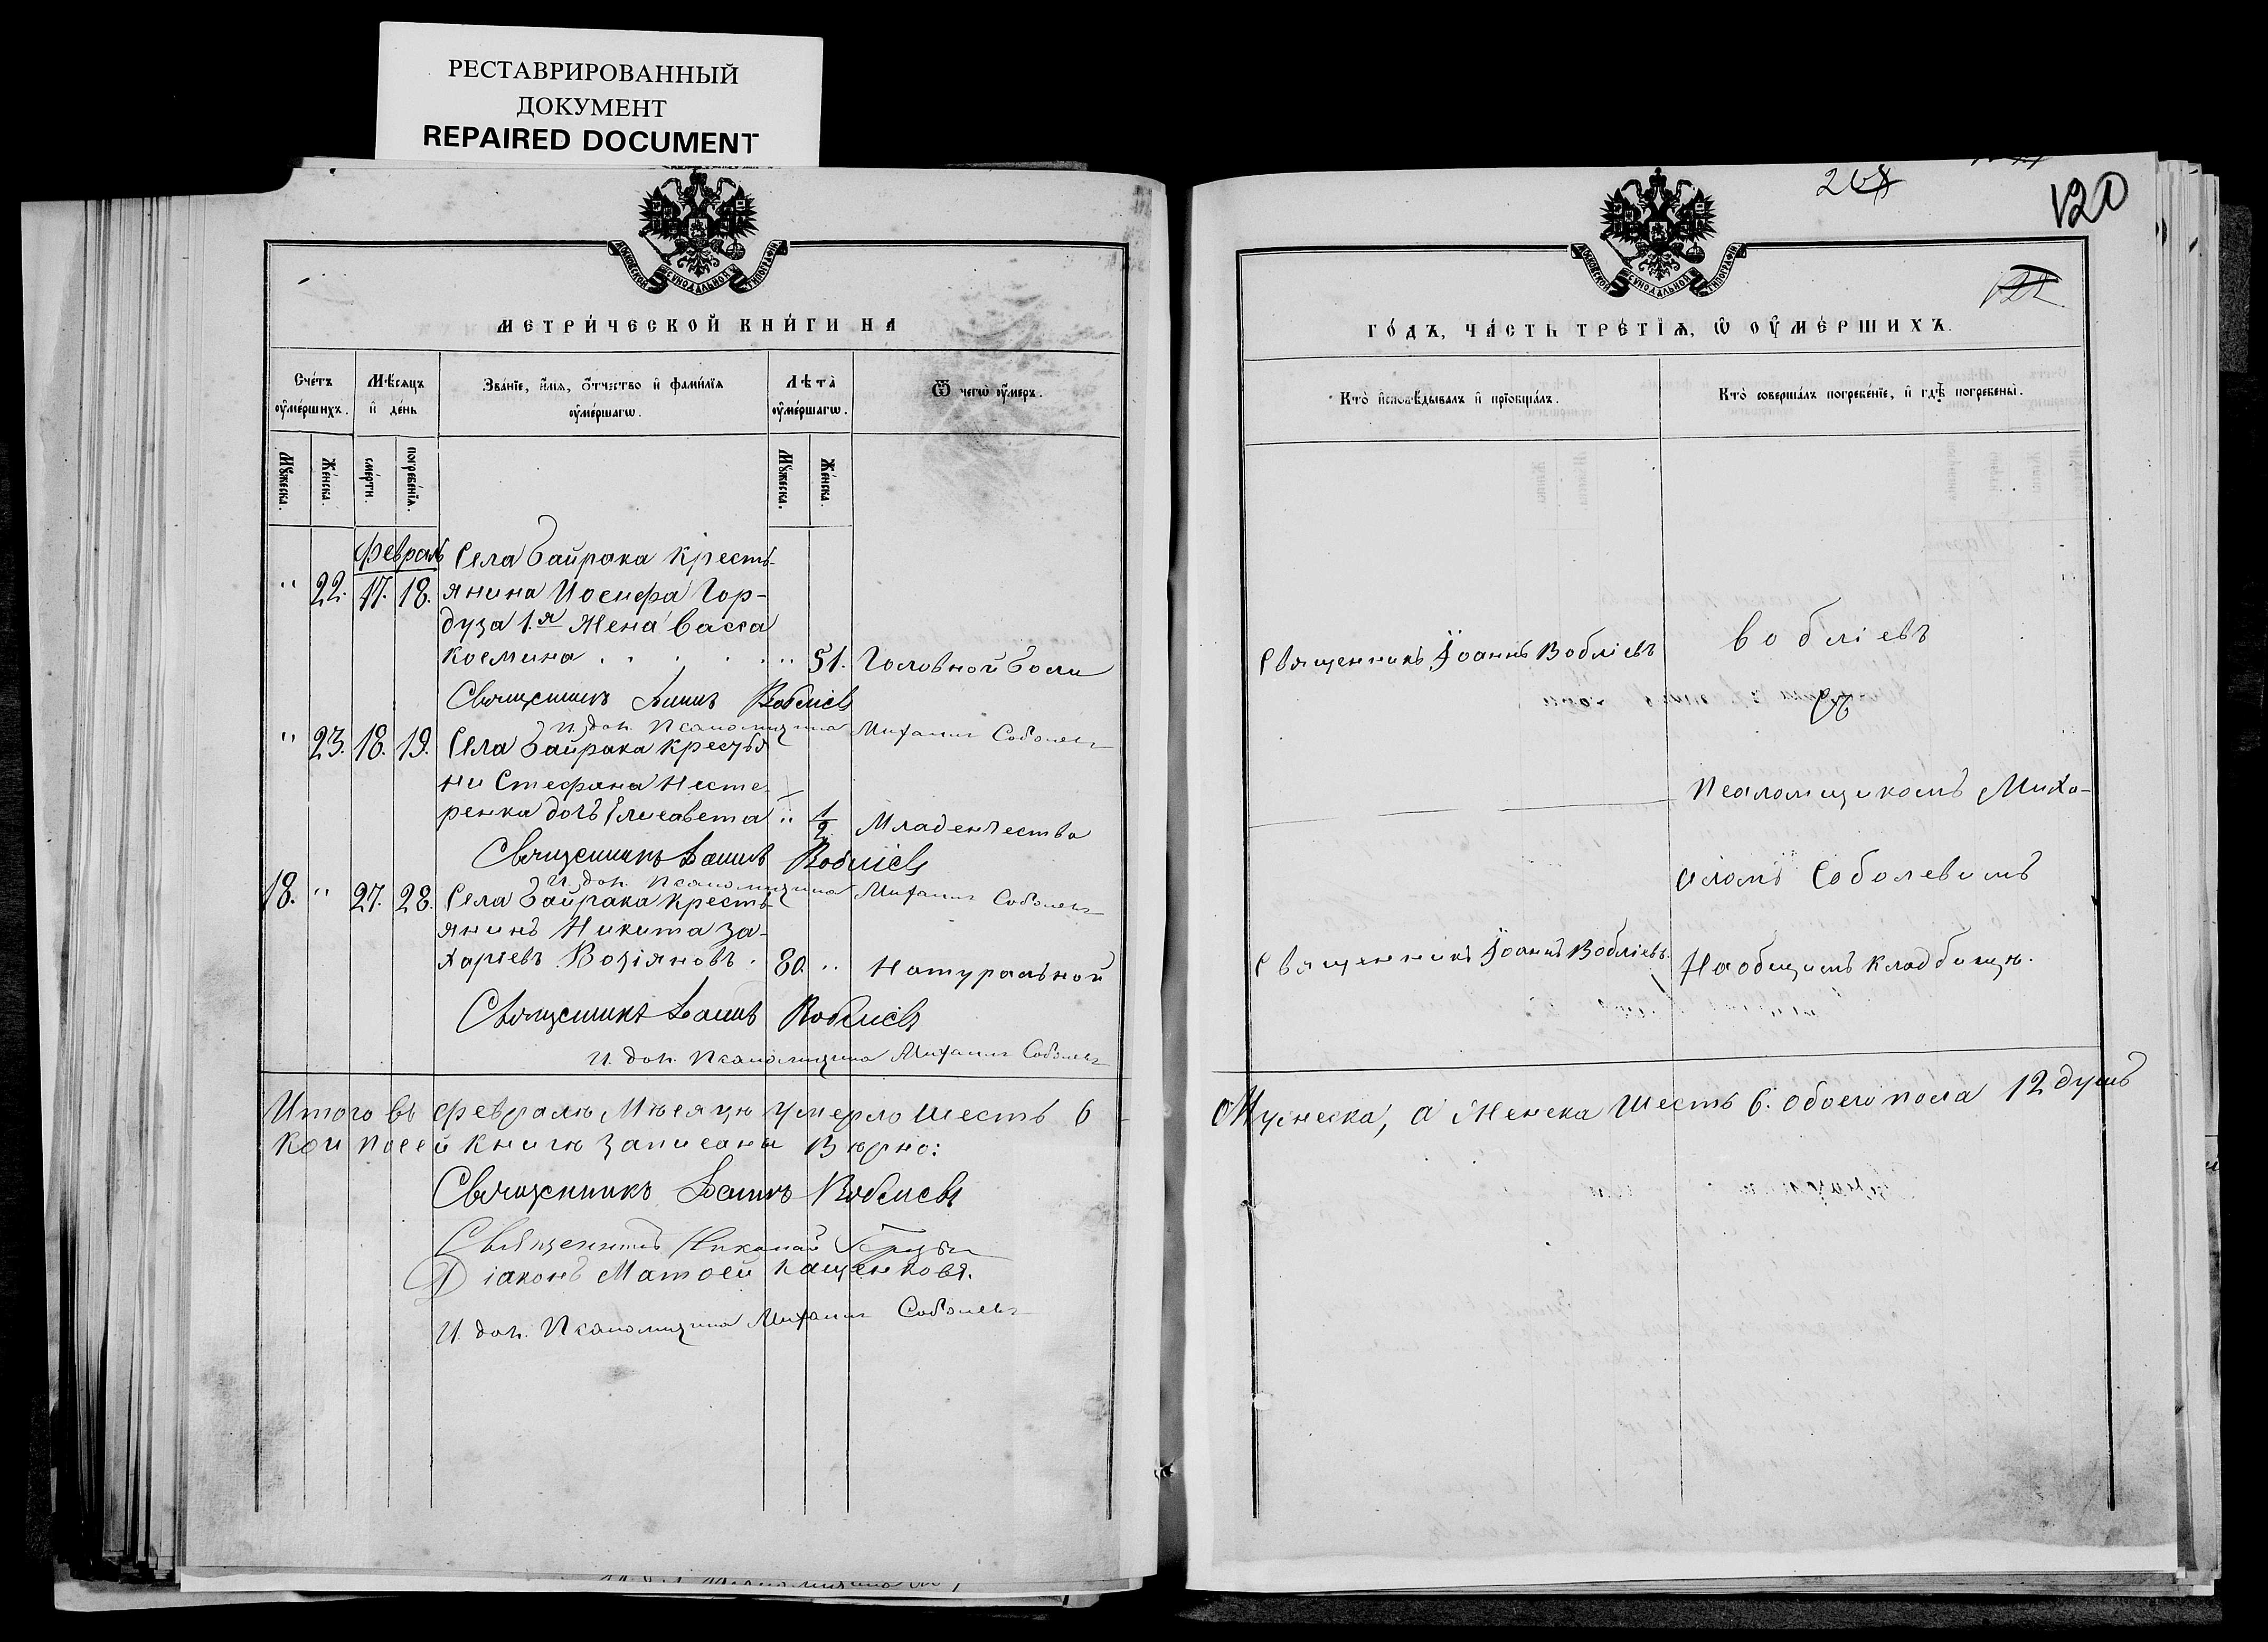 РЕСТАВРИРОВАННЫЙ
ДОКУМЕНТ
REPAIRED DOCUMENT
МОСКОВСКОЙ СѴНОДАЛЬНОЙ ТИПОГРАФІИ
МЕТРИ́ЧЕСКОЙ КНИ́ГИ НА
Сче́тъ ᲂу҆ме́ршихъ.
Мѣ́сяцъ и҆ де́нь
Зва́нїе, и҆́мѧ, ѻ҆́тчество и҆ фами́лїѧ ᲂу҆ме́ршагѡ.
Лѣ́та ᲂу҆ме́ршагѡ.
Ѿ чегѡ̀ ᲂу҆́меръ.
Мꙋ́жеска.
Же́нска.
сме́рти.
погребе́нїѧ.
Мꙋ́жеска.
Же́нска.
Февраль
Села Байрака кресть-
" 22. 17. 18. янина Иосифа Гор-
дуза 1.я жена Васса
Космина . . . . . " 51. Головной боли
Священникъ Іоаннъ Воблiевъ
И. дол. Псаломщика Михаилъ Соболевъ
" 23. 18. 19. Села Байрака крестья
ни Стефана Несте-
ренка дочь Елисавета " 1/2 Младенчества
Священникъ Іоаннъ Воблiевъ
И. дол. Псаломщика Михаилъ Соболевъ
18. " 27. 28. Села Байрака кресть-
янинъ Никита За-
харiевъ Водiяновъ . 80. " Натуральной
Священникъ Іоаннъ Воблiевъ
И. дол. Псаломщика Михаилъ Соболевъ
Итого въ февралѣ Мѣсяцѣ умерло шесть 6
кои посей книгѣ записаны Вѣрно:
Священникъ Іоаннъ Воблiевъ
Священникъ Николай
Дiаконъ Матѳей Кащенковъ.
И. дол. Псаломщика Михаилъ Соболевъ
120
МОСКОВСКОЙ СѴНОДАЛЬНОЙ ТИПОГРАФІИ
ГО́ДЪ, ЧА́СТЬ ТРЕ́ТЇѦ, Ѡ҆ ОУ҆МЕ́РШИХЪ.
Кто̀ и҆сповѣ́дывалъ и҆ прїѡбща́лъ.
Кто̀ соверша́лъ погребе́нїе, и҆ гдѣ̀ погребены̀.
Священникъ Іоаннъ Воблiевъ
Воблiевъ
съ
Псаломщикомъ Миха-
иломъ Соболевымъ
Священникъ Іоаннъ Воблiевъ.
На общемъ кладбищѣ.
Мужеска, а Женска шесть 6. обоего пола 12 душъ